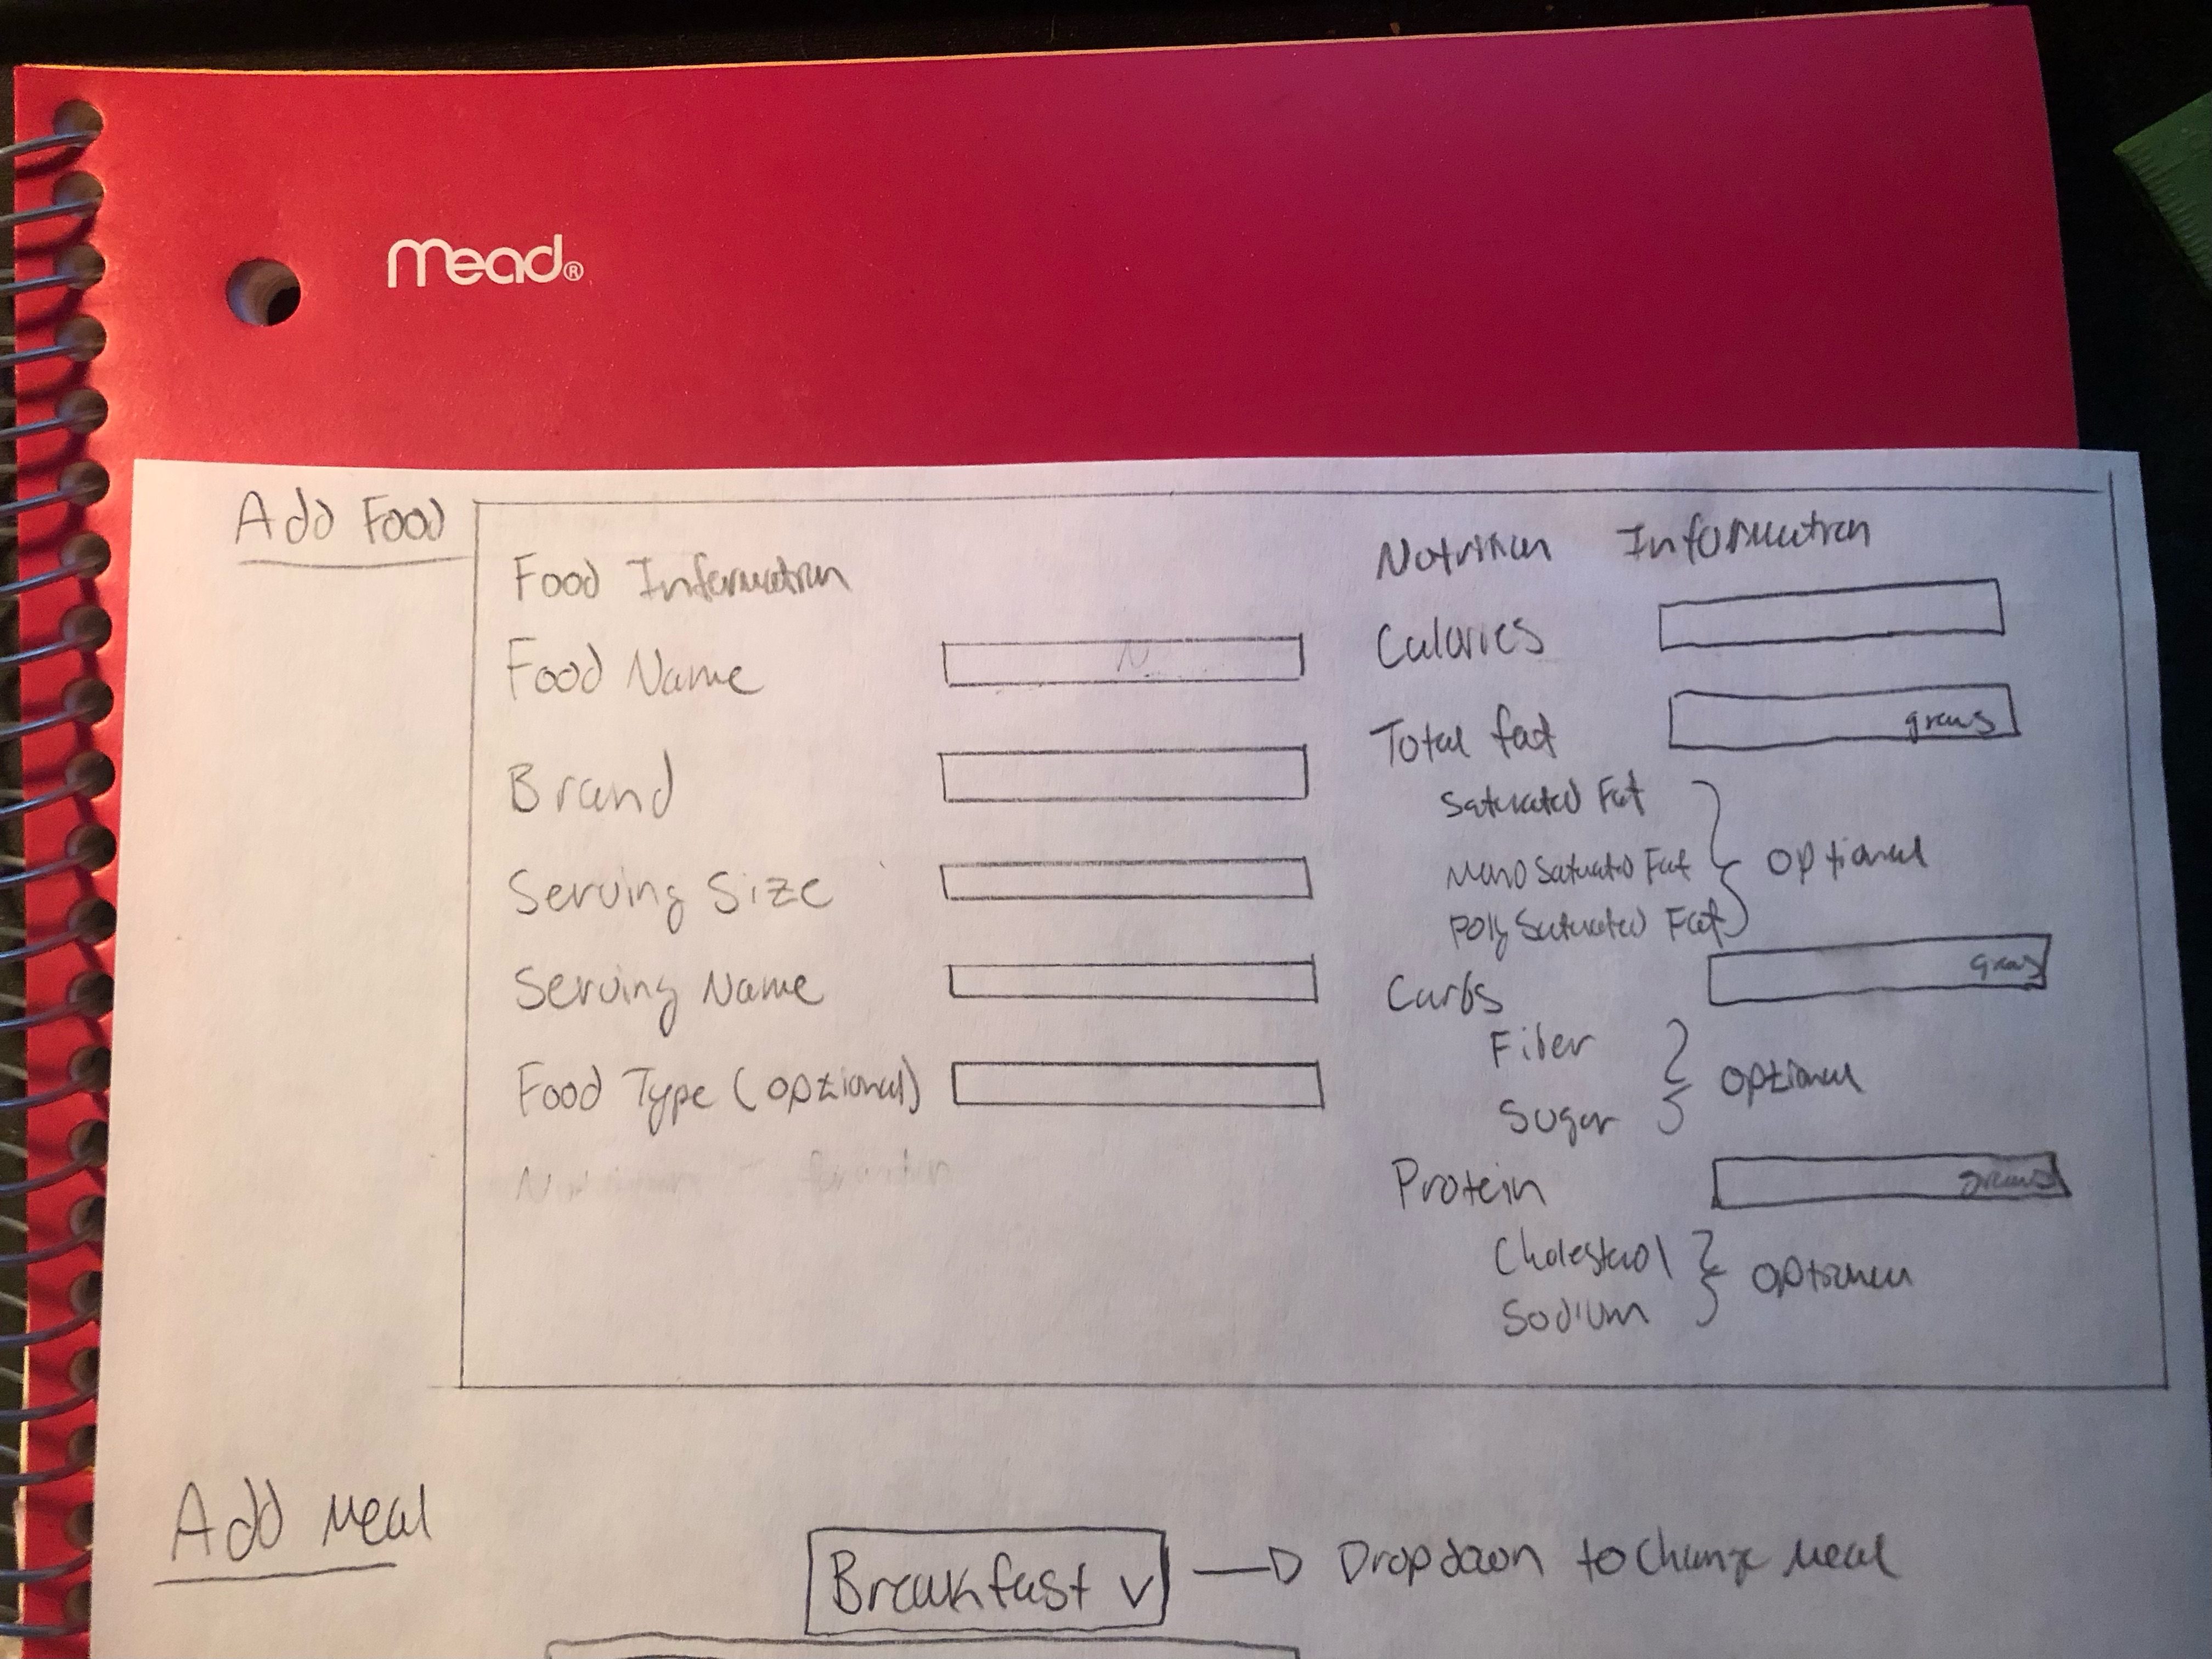 mead®
Add Food
Food Information
Food Name
Brand
Serving Size
Serving Name
Food Type (optional)
Nutrition Information
Calories
Total fat
grams
Saturated Fat
Mono Saturated Fat
Poly Saturated Fat
optional
Carbs
grams
Fiber
Sugar
optional
Protein
grams
Cholesterol
Sodium
optional
Add Meal
Breakfast V
Dropdown to change meal